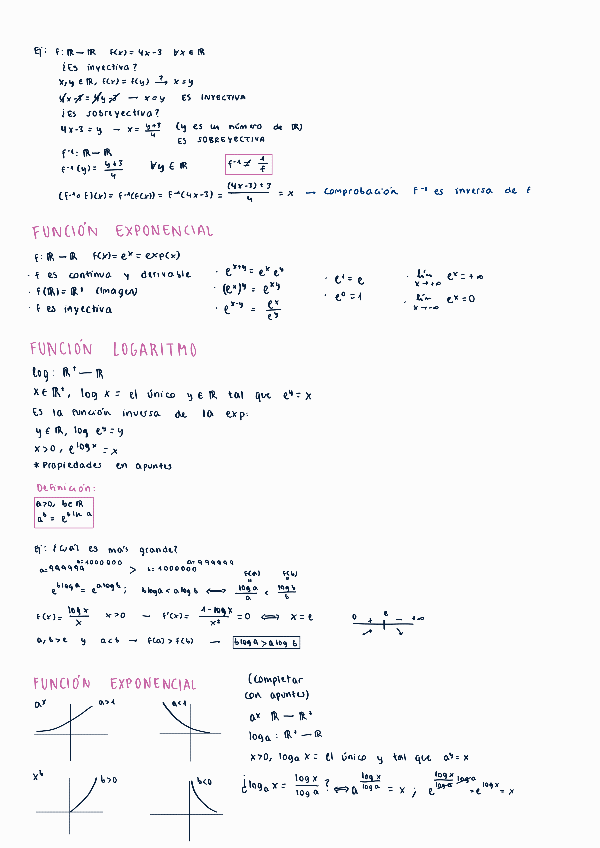 Ej: f: ℝ → ℝ f(x) = 4x - 3 ∀x ∈ ℝ
¿Es inyectiva?
x, y ∈ ℝ, f(x) = f(y) ?→ x = y
4x - 3 = 4y - 3 → x = y ES INYECTIVA
¿Es sobreyectiva?
4x - 3 = y → x = (y+3)/4 (y es un número de ℝ)
ES SOBREYECTIVA
f⁻¹: ℝ → ℝ
f⁻¹(y) = (y+3)/4 ∀y ∈ ℝ f⁻¹ ≠ 1/f
(f⁻¹ ∘ f)(x) = f⁻¹(f(x)) = f⁻¹(4x-3) = ((4x-3)+3)/4 = x → comprobación f⁻¹ es inversa de f
FUNCIÓN EXPONENCIAL
f: ℝ → ℝ f(x) = eˣ = exp(x)
· f es continua y derivable · eˣ⁺ʸ = eˣ eʸ · e¹ = e · lím x→+∞ eˣ = +∞
· f(ℝ) = ℝ⁺ (Imagen) · (eˣ)ʸ = eˣʸ · e⁰ = 1 · lím x→-∞ eˣ = 0
· f es inyectiva · eˣ⁻ʸ = eˣ/eʸ
FUNCIÓN LOGARITMO
log: ℝ⁺ → ℝ
x ∈ ℝ⁺, log x = el único y ∈ ℝ tal que eʸ = x
Es la función inversa de la exp:
y ∈ ℝ, log eʸ = y
x > 0, e^(log x) = x
* Propiedades en apuntes
Definición:
a > 0, b ∈ ℝ
aᵇ = e^(b ln a)
Ej: ¿Cuál es más grande?
a=999999^(b=1000000) > b=1000000^(a=999999)
f(a) f(b)
e^(b log a) = e^(a log b); b log a < a log b ⟺ log a/a < log b/b
f(x) = log x/x x > 0 → f'(x) = (1 - log x)/x² = 0 ⟺ x = e 0 + e - +∞
a, b > e y a < b → f(a) > f(b) → b log a > a log b
FUNCIÓN EXPONENCIAL (completar
con apuntes)
aˣ a>1 a<1
aˣ ℝ → ℝ⁺
logₐ: ℝ⁺ → ℝ
x > 0, logₐ x = el único y tal que aʸ = x
xᵇ b>0 b<0
¿logₐ x = log x/log a? ⟺ a^(log x/log a) = x; e^((log x/log a) log a) = e^(log x) = x